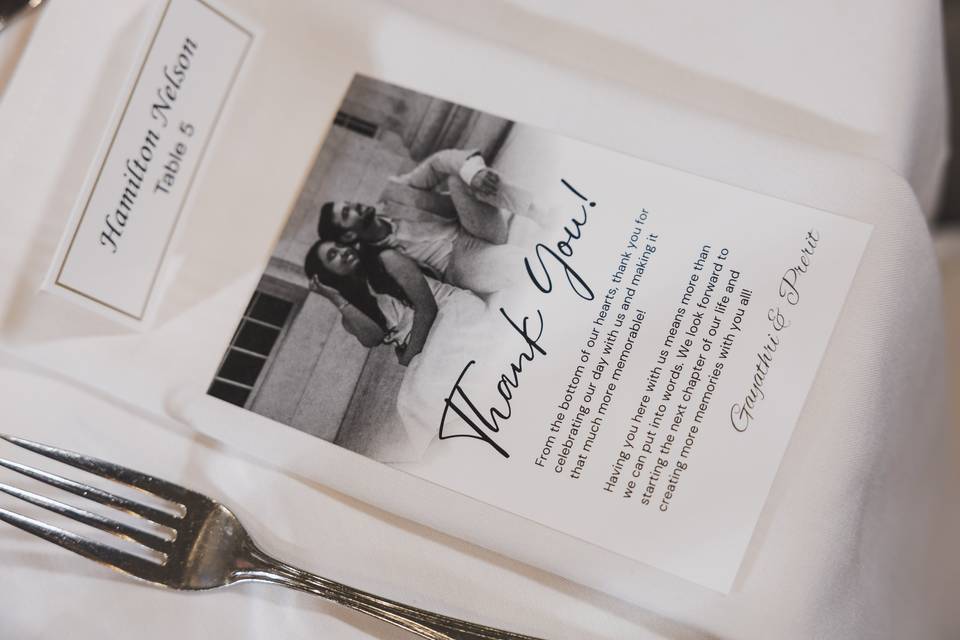 Hamilton Nelson
Table 5
Thank You!
From the bottom of our hearts, thank you for
celebrating our day with us and making it
that much more memorable!
Having you here with us means more than
we can put into words. We look forward to
starting the next chapter of our life and
creating more memories with you all!
Gayathri & Prerit